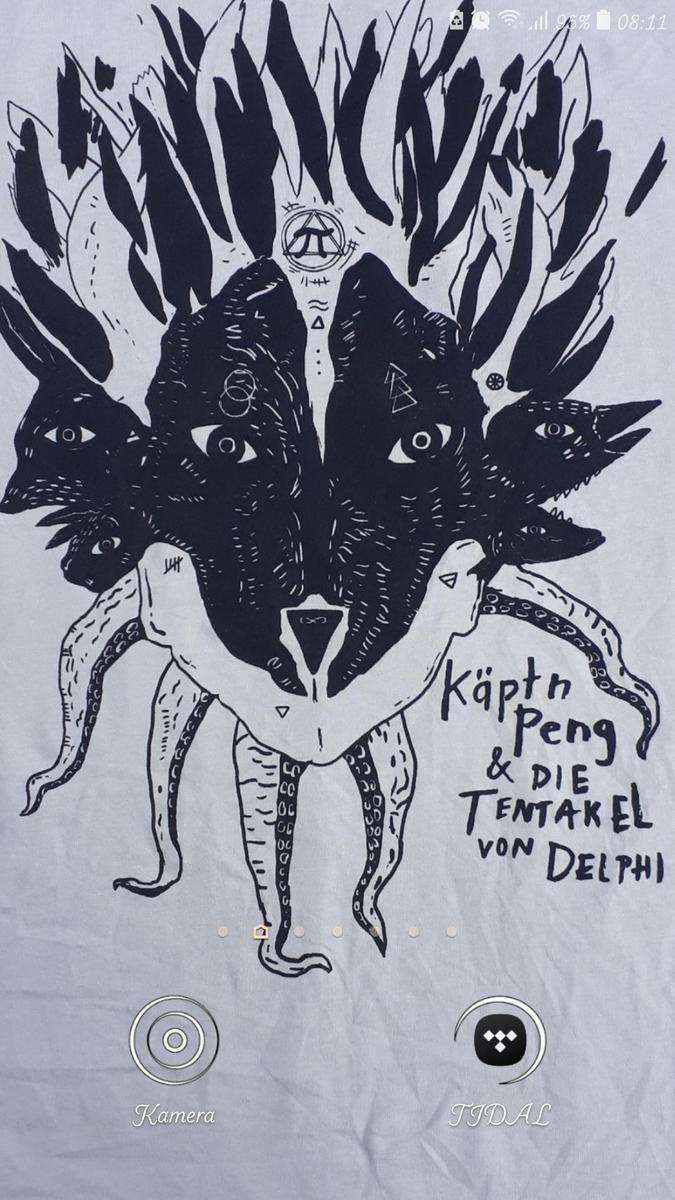 95% 08:11
π
Käptn
Peng
& DIE
TENTAKEL
VON DELPHI
Kamera
TIDAL